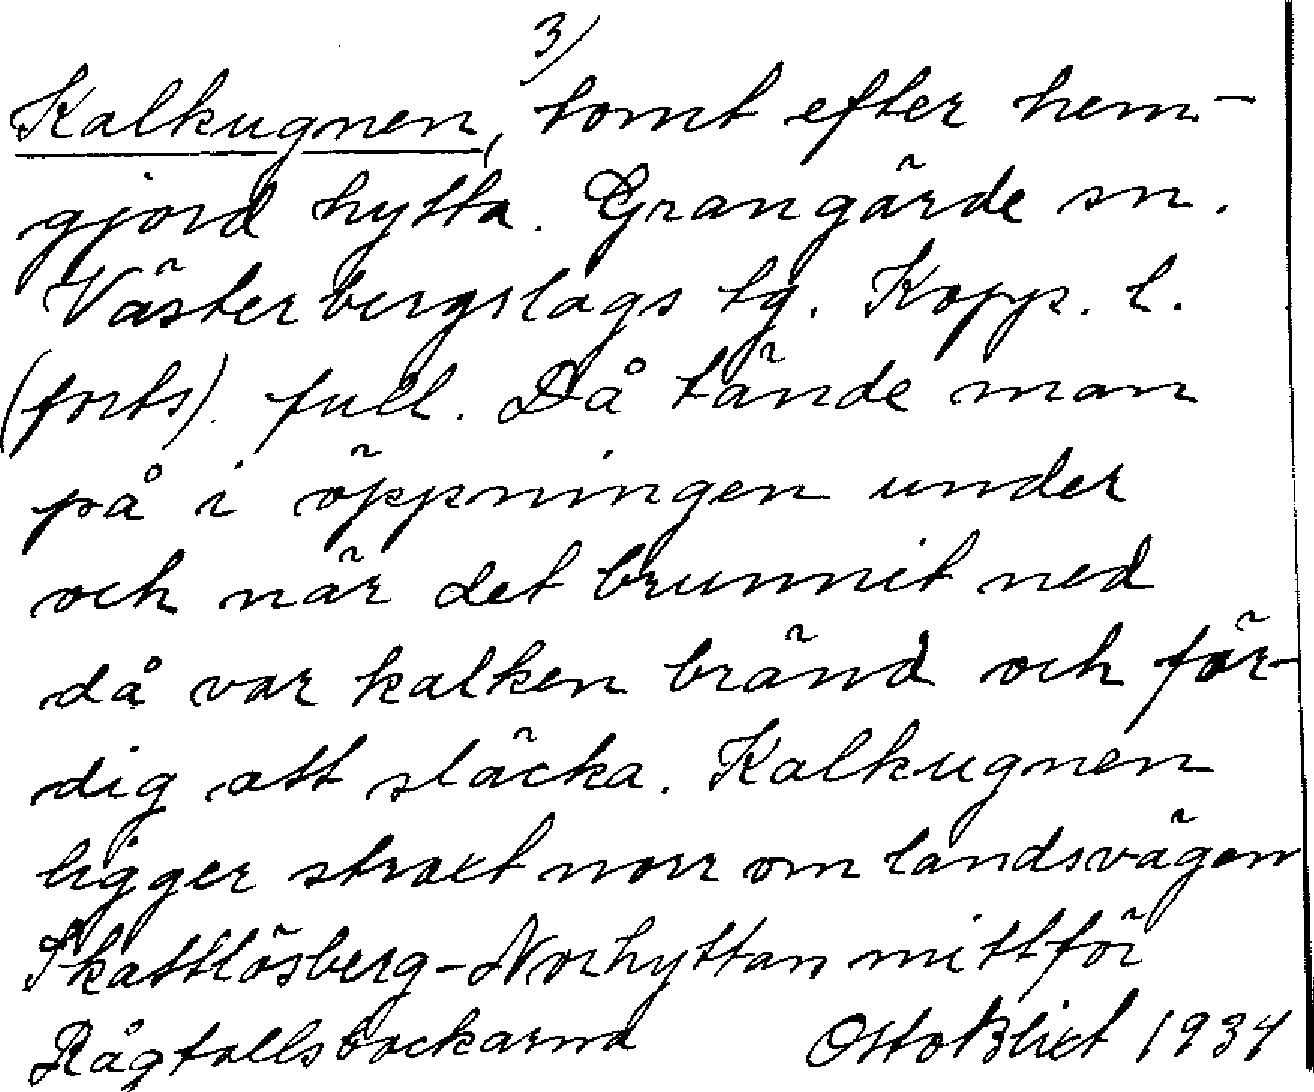 3)
Kalkugnen, tomt efter hem-
gjord hytta. Grangärde sn.
Västerbergslags tg. Kopp. l.
(forts). full. Då tände man
på i öppningen under
och när det brunnit ned
då var kalken bränd och fär-
dig att släcka. Kalkugnen
ligger straxt norr om landsvägen
Skattlösberg-Norhyttan mittför
Rågfallsbackarna Otto Blixt 1934